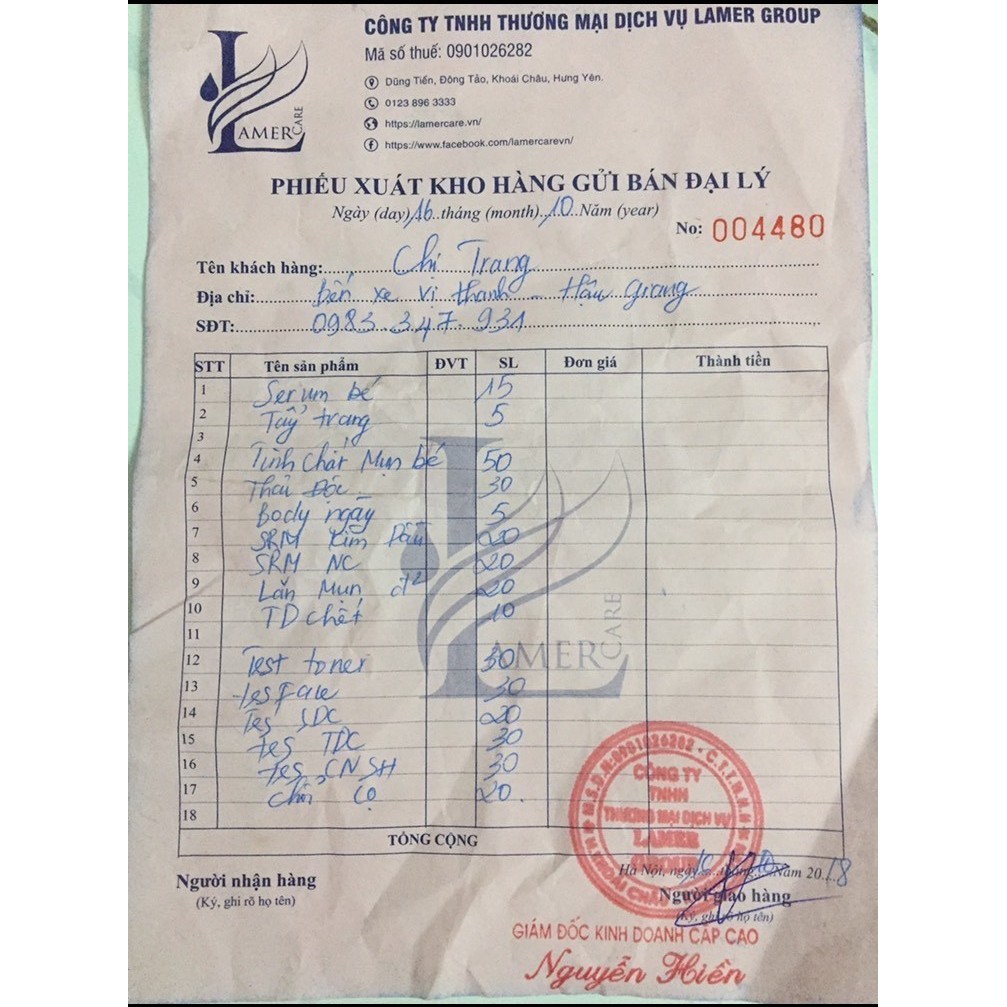 LAMER CARE
CÔNG TY TNHH THƯƠNG MẠI DỊCH VỤ LAMER GROUP
Mã số thuế: 0901026282
Dũng Tiến, Đông Tảo, Khoái Châu, Hưng Yên.
0123 896 3333
https://lamercare.vn/
https://www.facebook.com/lamercarevn/
PHIẾU XUẤT KHO HÀNG GỬI BÁN ĐẠI LÝ
Ngày (day) 16 tháng (month) 10 Năm (year)
No: 004480
Tên khách hàng: Chị Trang
Địa chỉ: Bến xe vị thanh - Hậu giang
SĐT: 0983.347.931
STT Tên sản phẩm ĐVT SL Đơn giá Thành tiền
1 Serum bé 15
2 Tẩy trang 5
3
4 Tinh chất Mụn bé 50
5 Thải Độc 30
6 Body ngày 5
7 SRM Kim 20
8 SRM NC 20
9 Lăn Mụn đ² 20
10 TD chết 10
11
12 Test toner 30
13 tes Face 30
14 Tes SDC 20
15 tes TDC 30
16 tes CNSH 30
17 Chổi cọ 20
18
LAMER CARE
TỔNG CỘNG
M.S.D.N:0901026282 - C.T.T.N.H.H
CÔNG TY
TNHH
THƯƠNG MẠI DỊCH VỤ
LAMER
GROUP
Hà Nội, ngày 16 tháng 10 Năm 2018
Người nhận hàng Người giao hàng
(Ký, ghi rõ họ tên) (Ký, ghi rõ họ tên)
GIÁM ĐỐC KINH DOANH CẤP CAO
Nguyễn Hiền